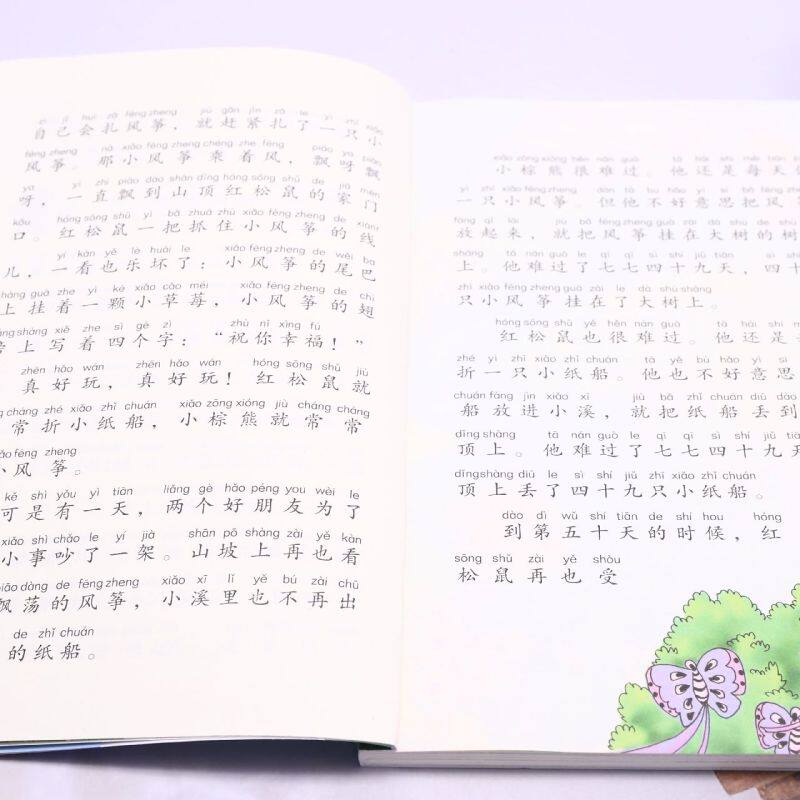 zì jǐ huì zā fēng zheng jiù gǎn jǐn zā le yì zhī xiǎo
自己会扎风筝，就赶紧扎了一只小
fēng zheng nà xiǎo fēng zheng chéng zhe fēng piāo ya piāo
风筝。那小风筝乘着风，飘呀飘
ya yì zhí piāo dào shān dǐng hóng sōng shǔ de jiā mén
呀，一直飘到山顶红松鼠的家门
kǒu hóng sōng shǔ yì bǎ zhuā zhù xiǎo fēng zheng de xiàn
口。红松鼠一把抓住小风筝的线
yí kàn yě lè huài le xiǎo fēng zheng de wěi bā
儿，一看也乐坏了：小风筝的尾巴
shàng guà zhe yì kē xiǎo cǎo méi xiǎo fēng zheng de chì
上挂着一颗小草莓，小风筝的翅
bǎng shàng xiě zhe sì gè zì zhù nǐ xìng fú
膀上写着四个字：“祝你幸福！”
zhēn hǎo wán zhēn hǎo wán hóng sōng shǔ jiù
真好玩，真好玩！红松鼠就
cháng zhé xiǎo zhǐ chuán xiǎo zōng xióng jiù cháng cháng
常折小纸船，小棕熊就常常
xiǎo fēng zheng
小风筝。
kě shì yǒu yì tiān liǎng gè hǎo péng you wèi le
可是有一天，两个好朋友为了
xiǎo shì chǎo le yí jià shān pō shàng zài yě kàn
小事吵了一架。山坡上再也看
piāo dàng de fēng zheng xiǎo xī lǐ yě bú zài chū
飘荡的风筝，小溪里也不再出
de zhǐ chuán
的纸船。
xiǎo zōng xióng hěn nán guò tā hái shì měi tiān
小棕熊很难过。他还是每天
yì zhī xiǎo fēng zheng dàn tā bù hǎo yì si bǎ fēng
一只小风筝。但他不好意思把风
fàng qǐ lái jiù bǎ fēng zheng guà zài dà shù de shù
放起来，就把风筝挂在大树的树
shàng tā nán guò le qī qī sì shí jiǔ tiān sì shí
上。他难过了七七四十九天，四十
zhī xiǎo fēng zheng guà zài le dà shù shàng
只小风筝挂在了大树上。
hóng sōng shǔ yě hěn nán guò tā hái shì
红松鼠也很难过。他还是
zhé yì zhī xiǎo zhǐ chuán tā yě bù hǎo yì si
折一只小纸船。他也不好意思
chuán fàng jìn xiǎo xī jiù bǎ zhǐ chuán diū dào
船放进小溪，就把纸船丢到
dǐng shàng tā nán guò le qī qī sì shí jiǔ tiān
顶上。他难过了七七四十九天
dǐng shàng diū le sì shí jiǔ zhī xiǎo zhǐ chuán
顶上丢了四十九只小纸船。
dào dì wǔ shí tiān de shí hou hóng
到第五十天的时候，红
sōng shǔ zài yě shòu
松鼠再也受